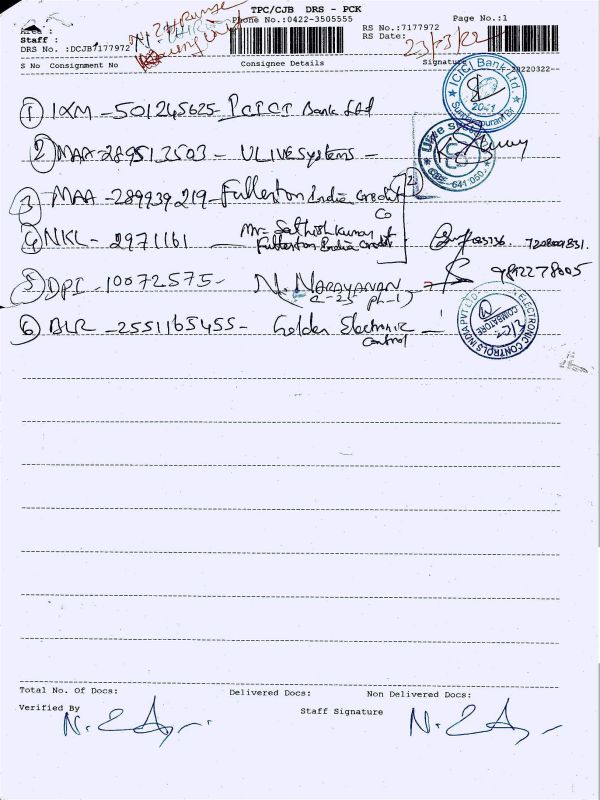 TPC/CJB DRS - PCK
Phone No.:0422-3505555
Page No.:1
Area :
Staff :
DRS No. :DCJB7177972
RS No.:7177972
RS Date:
23/03/22
S No Consignment No
Consignee Details
Signature
① IXM - 501245625 - ICICI Bank Ltd
ICICI Bank Ltd.
2041
② MAA - 289513503 - ULIVE Systems -
Ulive
641 050.
③ MAA - 289939219 - Fullerton India Credit
Co
④ NKL - 2971161 - Mr. Sathish kumar
Fullerton India Credit
⑤ DPI - 10072575 - N. NARAYANAN
9842278005
⑥ BLR - 2551165455 - Golden Electronic
Control
ELECTRONIC CONTROLS INDIA PVT LTD
COIMBATORE
Total No. Of Docs:
Delivered Docs:
Non Delivered Docs:
Verified By
Staff Signature